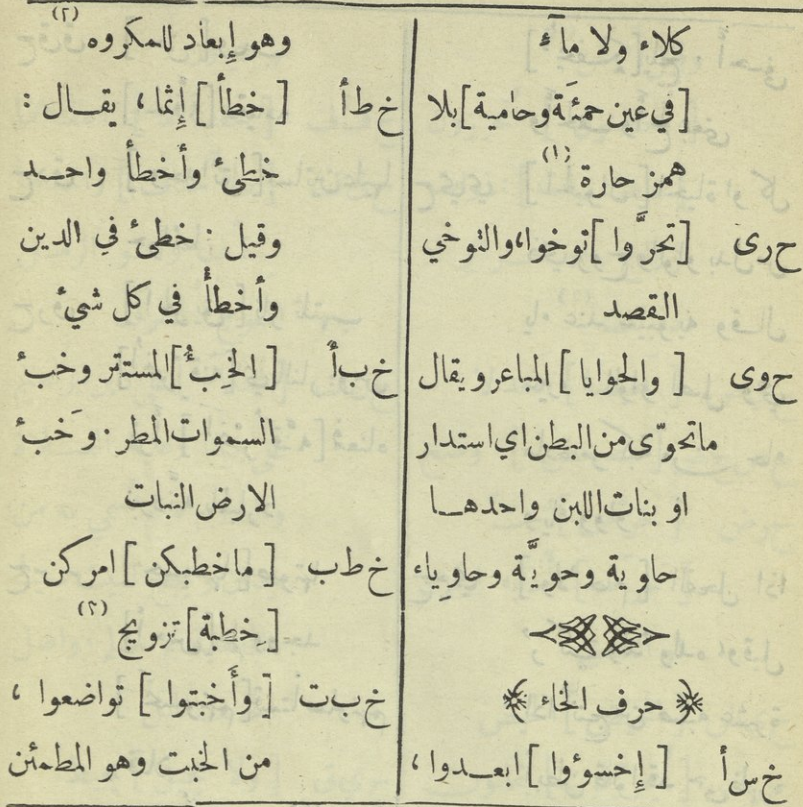 كلاء ولا مآء
[في عين حمئَة وحامية] بلا
همز حارة (١)
ح رى [تحرَّوا] توخوا، والتوخي
القصد
ح وى [والحوايا] المباعر و يقال
ما تحوّى من البطن اي استدار
او بنات اللبن واحدهـا
حاوية وحويَّة وحاوِياء
﴿ حرف الخاء ﴾
خ سأ [إِخسوُوا] ابعـدوا،
وهو إِبعاد للمكروه (٢)
خ طأ [خطأ] إِثما، يقـال :
خطئ وأخطأ واحـد
وقيل : خطئ في الدين
وأخطأ في كل شيء
خ بأ [الخبْء] المستتر وخبء
السموات المطر . وخبء
الارض النبات
خ ط ب [ما خطبكن] امركن
[خِطبة] تزويج (٢)
خ ب ت [وأَخبتوا] تواضعوا،
من الخبت وهو المطمئن